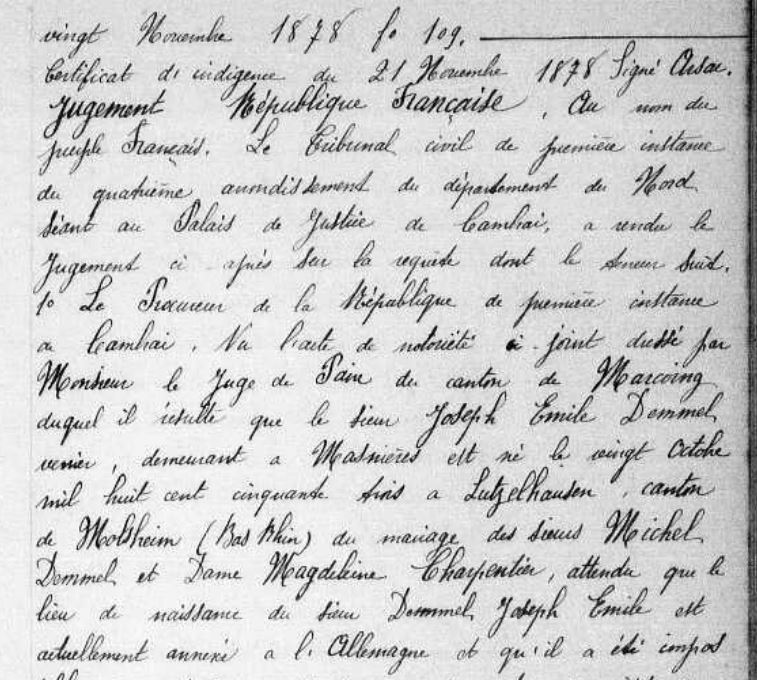 vingt Novembre 1878 fo 109.
Certificat d'indigence du 21 Novembre 1878 Signé
Jugement République Française, Au nom du
peuple Français. Le Tribunal civil de première instance
du quatrième arrondissement du département du Nord
séant au Palais de Justice de Cambrai, a rendu le
Jugement ci-après sur la requête dont la teneur suit.
1o Le Procureur de la République de première instance
a Cambrai, Vu l'acte de notoriété ci-joint dressé par
Monsieur le Juge de Paix du canton de Marcoing
duquel il résulte que le sieur Joseph Emile Demmel
verrier, demeurant a Masnières est né le vingt Octobre
mil huit cent cinquante trois a Lutzelhausen, canton
de Molsheim (Bas Rhin) du mariage des sieurs Michel
Demmel et Dame Magdeleine Charpentier, attendu que le
lieu de naissance du sieur Demmel Joseph Emile est
actuellement annexé a l'Allemagne et qu'il a été impos